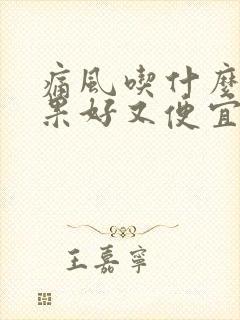 痛風喫什麼
果好又便宜
王嘉寧